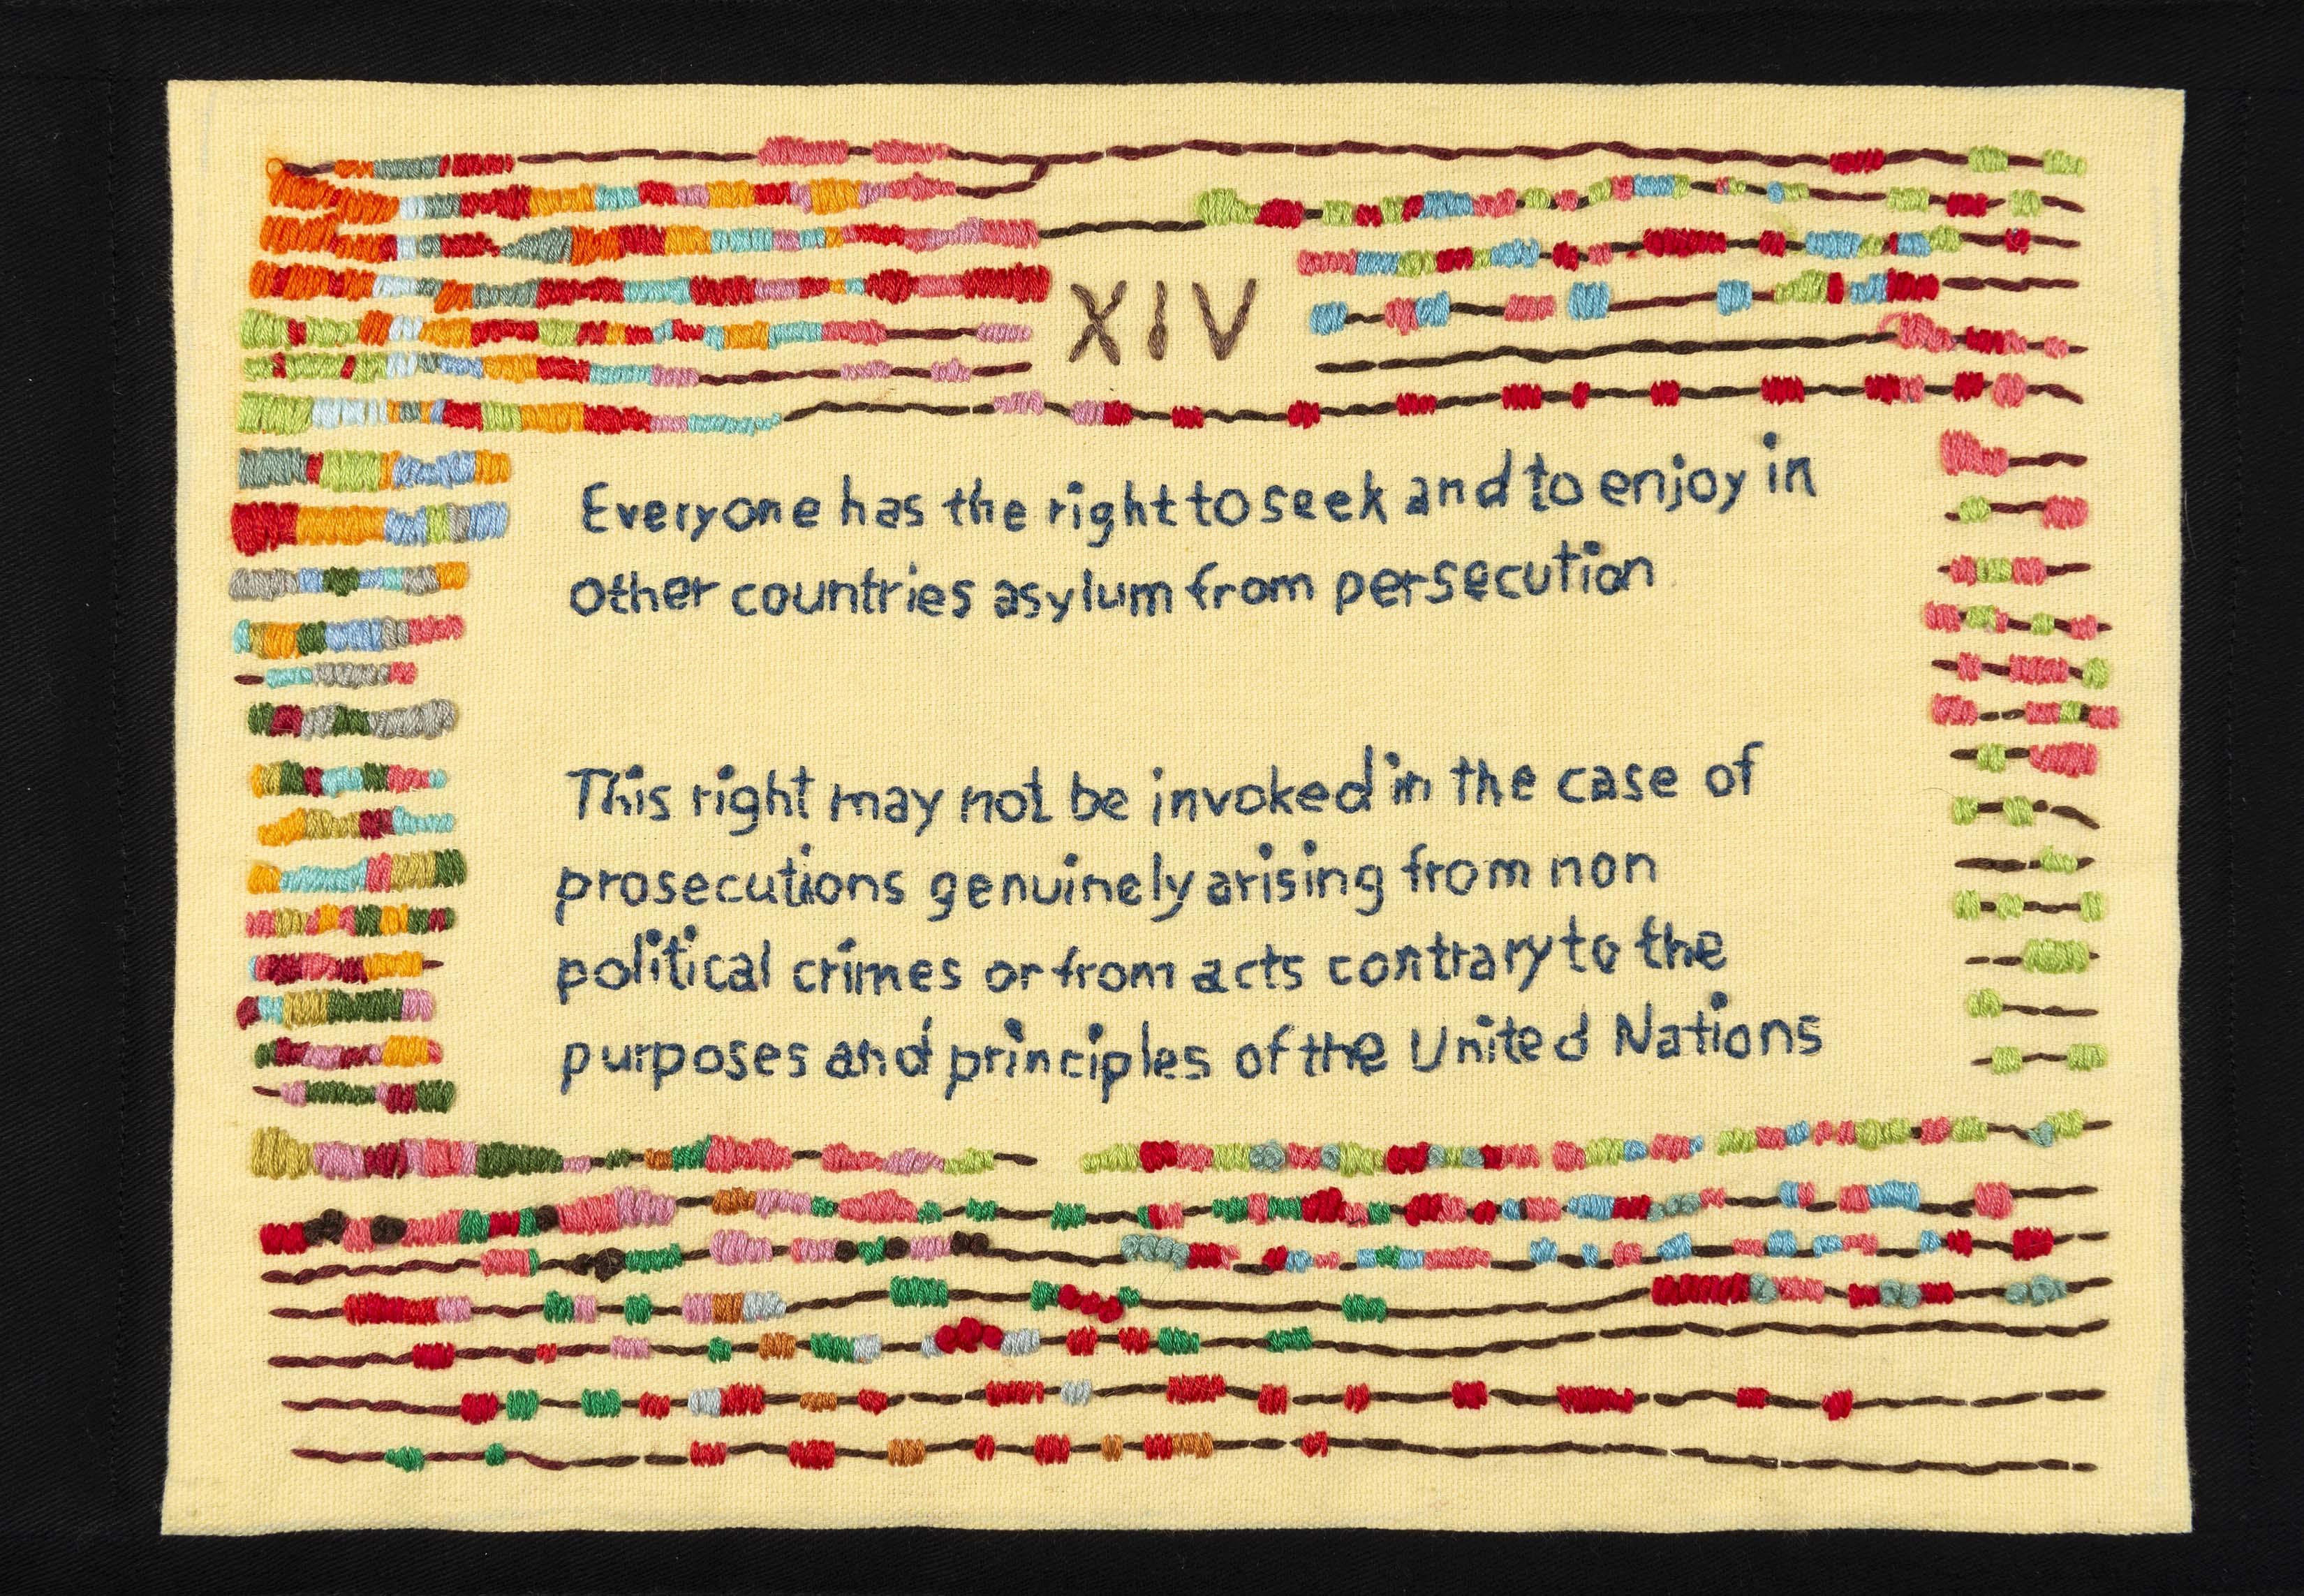 XIV
Everyone has the right to seek and to enjoy in
other countries asylum from persecution
This right may not be invoked in the case of
prosecutions genuinely arising from non
political crimes or from acts contrary to the
purposes and principles of the United Nations